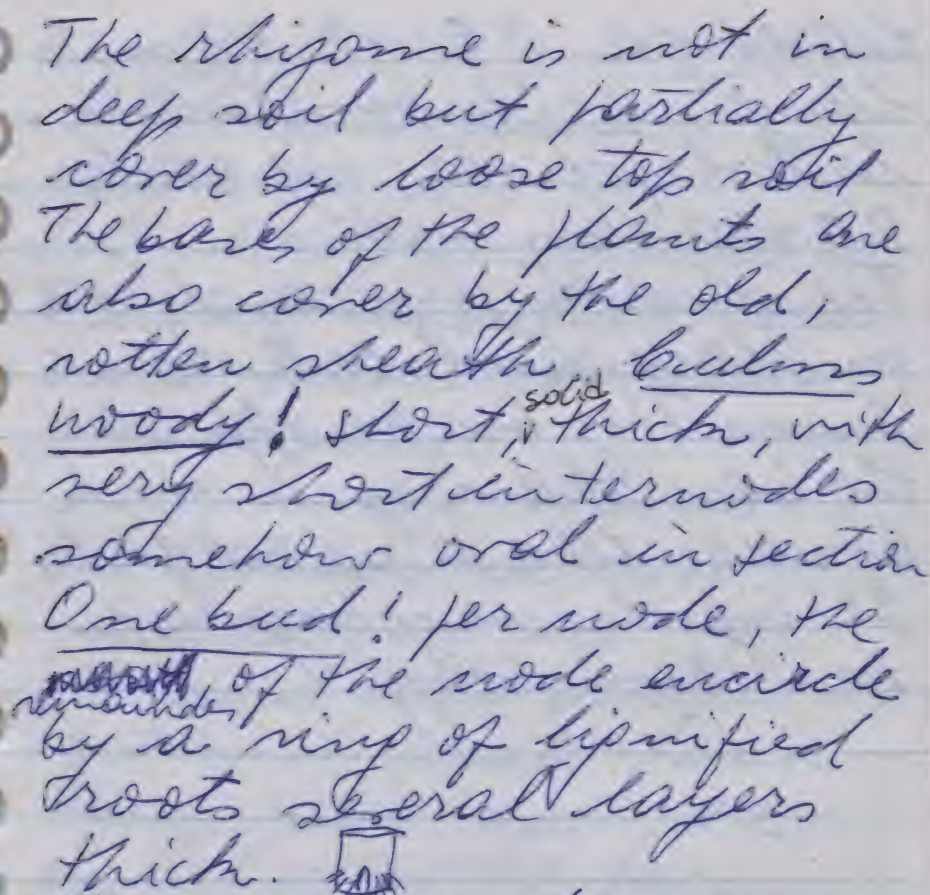 The rhizome is not in
deep soil but partially
cover by loose top soil
The bases of the plants are
also cover by the old,
rotten sheath Culms
woody! short, solid, thick, with
very short internodes
somehow oval in section
One bud! per node, the
remainder of the node encircle
by a ring of lignified
roots several layers
thick.